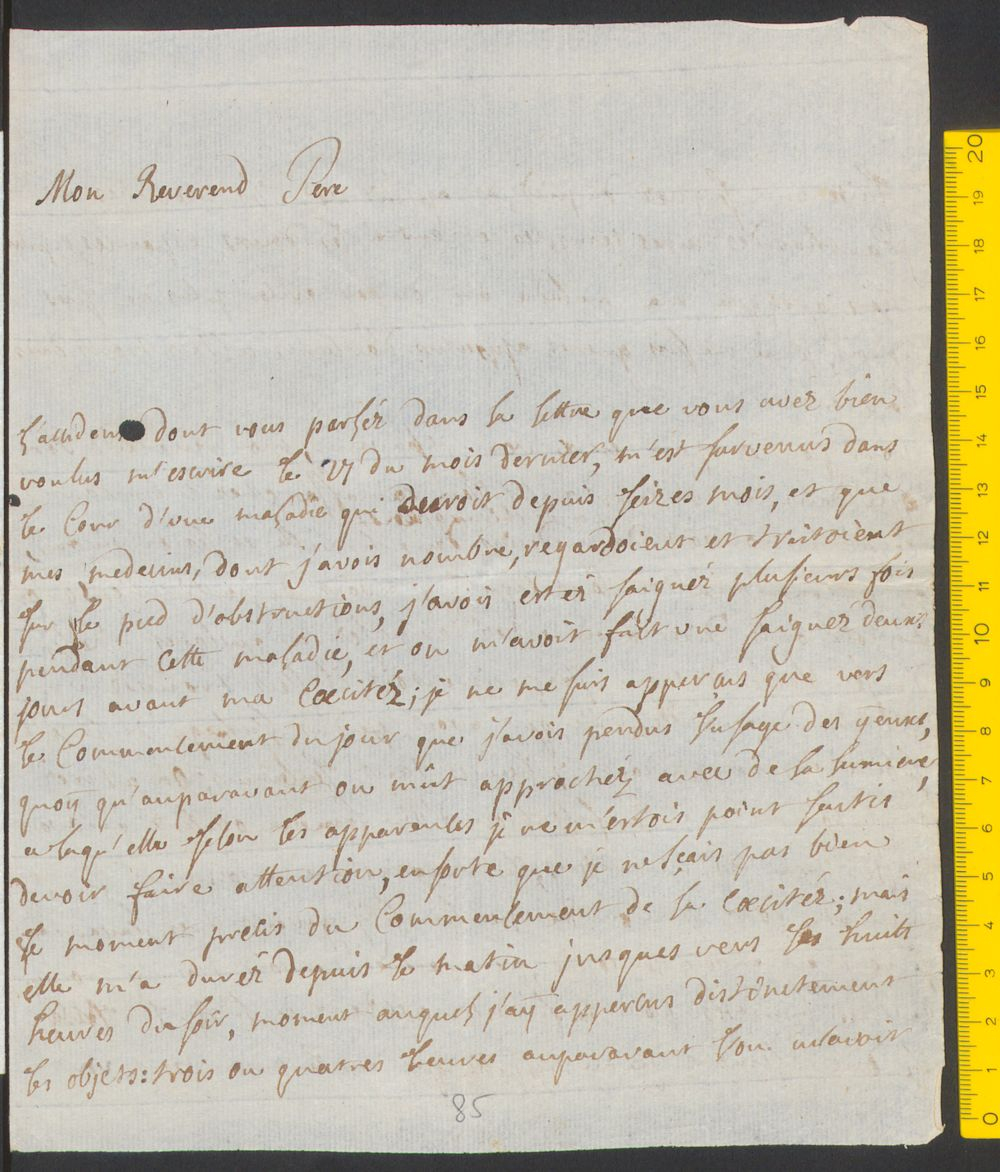 Mon Reverend Pere
L'accident dont vous parléz dans la lettre que vous avez bien
voulus m'escrire le 27 du mois dernier, m'est survenus dans
le Cour d'une maladie qui duroit depuis seizes mois, et que
mes medecins, dont j'avois nombre, regardoient et traitoient
sur le pied d'obstructions, j'avois estéz saignéz plusieurs fois
pendant cette maladie, et on m'avoit fait une saignéz deux
jours avant ma Cœcitéz; je ne me suis apperçus que vers
le Commencement du jour que j'avois perdus l'usage des ÿeux,
quoÿ qu'auparavant on m'ût approchéz avec de la lumiere,
a laqu'elle selon les apparences je ne m'estois point
devoir faire attention, ensorte que je ne sçais pas bien
le moment precis du Commencement de la Cœcitéz; mais
elle m'a duréz depuis le matin jusques vers les huits
heures du soir, moment auquel j'aÿ apperçus distinctement
les objets: trois ou quatres heures auparavant l'on m'avoit
85
20
19
18
17
16
15
14
13
12
11
10
9
8
7
6
5
4
3
2
1
0